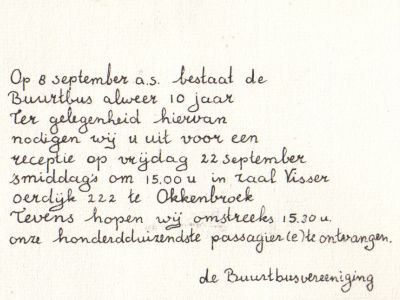 Op 8 september a.s. bestaat de
Buurtbus alweer 10 jaar
Ter gelegenheid hiervan
nodigen wij u uit voor een
receptie op vrijdag 22 september
smiddag's om 15.00 u in zaal Visser
oerdijk 222 te Okkenbroek
Tevens hopen wij omstreeks 15.30 u.
onze honderdduizendste passagier(e) te ontvangen.
de Buurtbusvereeniging